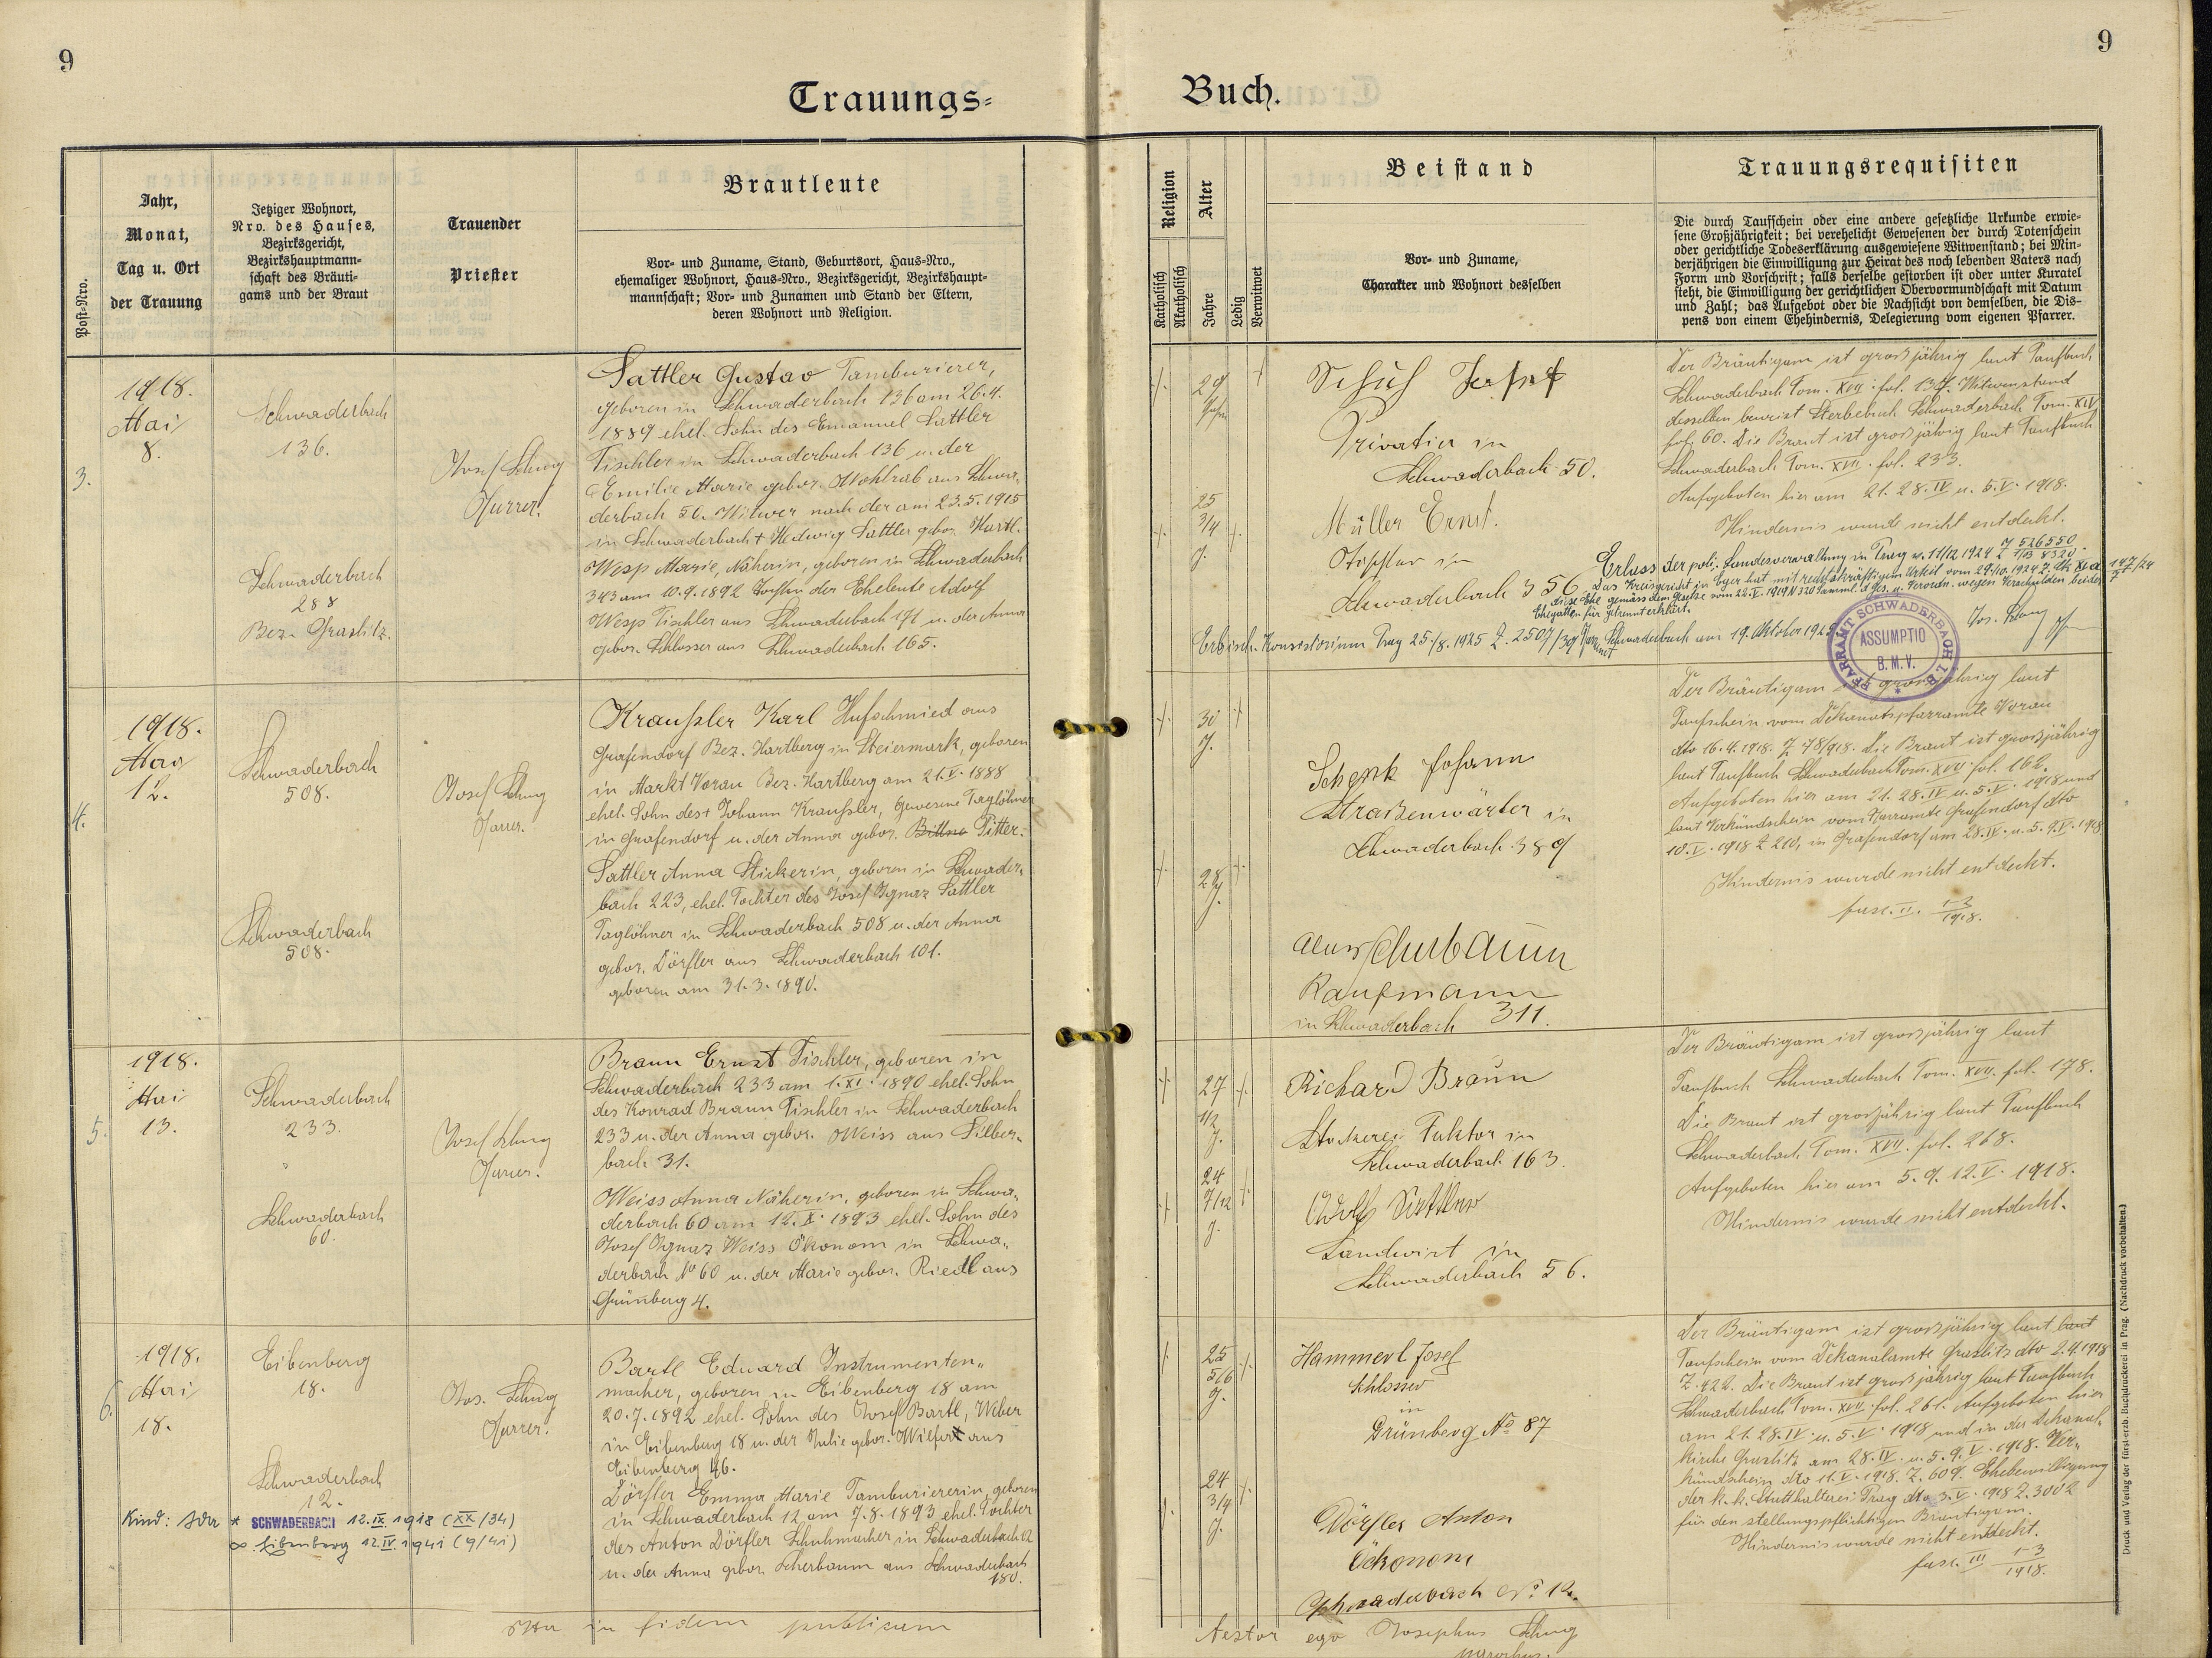 9
9
Trauungs=
Buch.
Post-Nro.
Jahr,
Monat,
Tag u. Ort
der Trauung
Jetziger Wohnort,
Nro. des Hauses,
Bezirksgericht,
Bezirkshauptmann=
schaft des Bräuti=
gams und der Braut
Trauender
Priester
Brautleute
Vor- und Zuname, Stand, Geburtsort, Haus-Nro.,
ehemaliger Wohnort, Haus-Nro., Bezirksgericht, Bezirkshaupt=
mannschaft; Vor- und Zunamen und Stand der Eltern,
deren Wohnort und Religion.
Religion
Katholisch
Akatholisch
Alter
Jahre
Ledig
Verwitwet
Beistand
Vor- und Zuname,
Charakter und Wohnort desselben
Trauungsrequisiten
Die durch Taufschein oder eine andere gesetzliche Urkunde erwie=
sene Großjährigkeit; bei verehelicht Gewesenen der durch Totenschein
oder gerichtliche Todeserklärung ausgewiesene Witwenstand; bei Min=
derjährigen die Einwilligung zur Heirat des noch lebenden Vaters nach
Form und Vorschrift; falls derselbe gestorben ist oder unter Kuratel
steht, die Einwilligung der gerichtlichen Obervormundschaft mit Datum
und Zahl; das Aufgebot oder die Nachsicht von demselben, die Dis=
pens von einem Ehehindernis, Delegierung vom eigenen Pfarrer.
3.
1918.
Mai
8.
Schwaderbach
136.
Schwaderbach
288
Bez. Graslitz.
Josef
Pfarrer.
Sattler Gustav Tamburierer,
geboren in Schwaderbach 136 am 26.4.
1889 ehel. Sohn des Emanuel Sattler
Tischler in Schwaderbach 136 u. der
Emilie Marie gebor. Wohlrab aus Schwa-
derbach 50. Witwer nach der am 23.5.1915
in Schwaderbach + Hedwig Sattler gebor. Hartl.
Wesp Marie, Näherin, geboren in Schwaderbach
343 am 10.9.1892 Tochter der Eheleute Adolf
Wesp Tischler aus Schwaderbach 171 u. der Anna
gebor. Schlosser aus Schwaderbach 165.
29
25
3/4
J.
Schuh Josef
Privatier in
Schwaderbach 50.
Müller Ernst.
Tischler in
Schwaderbach 356
Der Bräutigam ist großjährig laut Taufbuch
Schwaderbach Tom. XVII. fol. 137. Witwenstand
desselben beweist Sterbebuch Schwaderbach Tom. XIV
fol. 60. Die Braut ist großjährig laut Taufbuch
Schwaderbach Tom. XVII. fol. 233.
Aufgeboten hier am 21. 28. IV u. 5. V. 1918.
Hindernis wurde nicht entdeckt.
Erlass der pol. Landesverwaltung in Prag v. 11/12 1924 Z 526550
Das Kreisgericht in Eger hat mit rechtskräftigem Urteil vom 29./10. 1924
diese Ehe gemäss dem Gesetze vom 22. V. 1919 N 320 Samml. d. Ges. u. Verordn. wegen Verschulden beider
Ehegatten für getrennt erklärt.
Erzbisch. Konsistorium Prag 25/8. 1925 Z. 2507/ Schwaderbach am 19. Oktober 1925
PFARRAMT SCHWADERBACH I. B.
ASSUMPTIO
B. M. V.
4.
1918.
Mai
12.
Schwaderbach
508.
Schwaderbach
508.
Josef
Pfarrer.
Kraußler Karl Hufschmied aus
Grafendorf Bez. Hartberg in Steiermark, geboren
in Markt Vorau Bez. Hartberg am 21. V. 1888
ehel. Sohn des + Johann Kraußler, gewesene Taglöhner
in Grafendorf u. der Anna gebor. Bittne Pitter.
Sattler Anna Stickerin, geboren in Schwader-
bach 223, ehel. Tochter des Josef Ignaz Sattler
Taglöhner in Schwaderbach 508 u. der Anna
gebor. Dörfler aus Schwaderbach 101.
geboren am 31.3.1890.
30
J.
28
J.
Schenk Johann
Straßenwärter in
Schwaderbach 389
Kaufmann
in Schwaderbach 311.
Der Bräutigam ist großjährig laut
Taufschein vom Dekanatspfarramte Vorau
dto 16.4.1918. Z 78/918. Die Braut ist großjährig
laut Taufbuch Schwaderbach Tom. XVII fol. 162.
Aufgeboten hier am 21. 28. IV u. 5. V. 1918 und
laut Verkündschein vom Pfarramte Grafendorf dto
10. V. 1918 Z 210, in Grafendorf am 28. IV. u. 5. 9. V. 1918
Hindernis wurde nicht entdeckt.
fasc. II. 1-3
1918.
5.
1918.
Mai
13.
Schwaderbach
233.
Schwaderbach
60.
Josef
Pfarrer.
Braun Ernst Tischler, geboren in
Schwaderbach 233 am 1. XI. 1890 ehel. Sohn
des Konrad Braun Tischler in Schwaderbach
233 u. der Anna gebor. Weiss aus Silber-
bach 31.
Weiss Anna Näherin, geboren in Schwa-
derbach 60 am 12. X. 1893 ehel. Sohn des
Josef Ignaz Weiss Ökonom in Schwa-
derbach No 60 u. der Marie gebor. Riedl aus
Grünberg 4.
27
1/2
J.
24
7/12
J.
Richard Braun
Stickerei Faktor in
Schwaderbach 163.
Adolf Sattler
Landwirt in
Schwaderbach 56.
Der Bräutigam ist großjährig laut
Taufbuch Schwaderbach Tom. XVII. fol. 178.
Die Braut ist großjährig laut Taufbuch
Schwaderbach Tom. XVII. fol. 268.
Aufgeboten hier am 5. 9. 12. V. 1918.
Hindernis wurde nicht entdeckt.
6.
1918.
Mai
18.
Eibenberg
18.
Schwaderbach
12.
Jos.
Pfarrer.
Bartl Eduard Instrumenten-
macher, geboren in Eibenberg 18 am
20.7.1892 ehel. Sohn des Josef Bartl, Weber
in Eibenberg 18 u. der Julie gebor. Wilfert aus
Eibenberg 46.
Dörfler Emma Marie Tamburiererin, geboren
in Schwaderbach 12 am 7.8.1893 ehel. Tochter
des Anton Dörfler Schuhmacher in Schwaderbach 12
u. der Anna gebor. Scherbaum aus Schwaderbach
180.
Kind: Ida * SCHWADERBACH 12. IX. 1918 (XX/34)
∞ Eibenberg 12. IV. 1941 (9/41)
25
5/6
J.
24
3/4
J.
Hammerl Josef
Schlosser
in
Grünberg No 87
Dörfler Anton
Öckonom
Schwaderbach No 12.
Der Bräutigam ist großjährig laut laut
Taufschein vom Dekanalamte Graslitz dto 2.4.1918
Z. 422. Die Braut ist großjährig laut Taufbuch
Schwaderbach Tom. XVII. fol. 261. Aufgeboten hier
am 21. 28. IV. u. 5. V. 1918 und in der Dekanal-
kirche Graslitz am 28. IV. u. 5. 9. V. 1918. Ver-
kündschein dto 11. V. 1918. Z. 609. Ehebewilligung
der k. k. Statthalterei Prag dto 3. V. 1918 Z. 3002
für den stellungspflichtigen Bräutigam.
Hindernis wurde nicht entdeckt.
fasc. III 1-3
1918.
Ita in fidem publicam
testor ego Josephus
parochus.
Druck und Verlag der fürst-erzb. Buchdruckerei in Prag. (Nachdruck vorbehalten.)